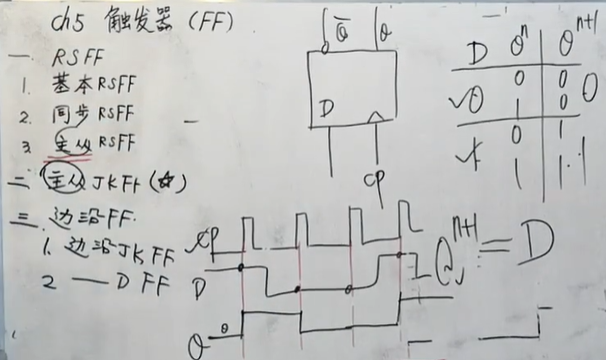 ch5 触发器 (FF)
一 RSFF
1. 基本RSFF
2. 同步RSFF
3. 主从RSFF
二 主从JKFF (☆)
三. 边沿FF.
1. 边沿JKFF
2 — D FF
Q̅ Q
D
CP
D Qⁿ Qⁿ⁺¹
0 0 0
1 0 0
0 1
1 1 1
CP
D
Q 0
Qⁿ⁺¹ = D